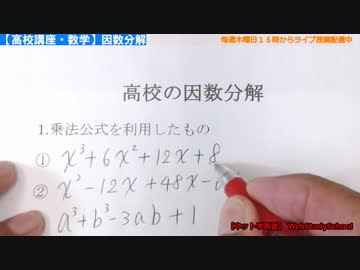 【高校講座・数学】因数分解
毎週木曜日16時からライブ授業配信中
高校の因数分解
1.乗法公式を利用したもの
① x³+6x²+12x+8
② x³-12x+48x-6
a³+b³-3ab+1
【ネット学習塾】 WebStudySchool